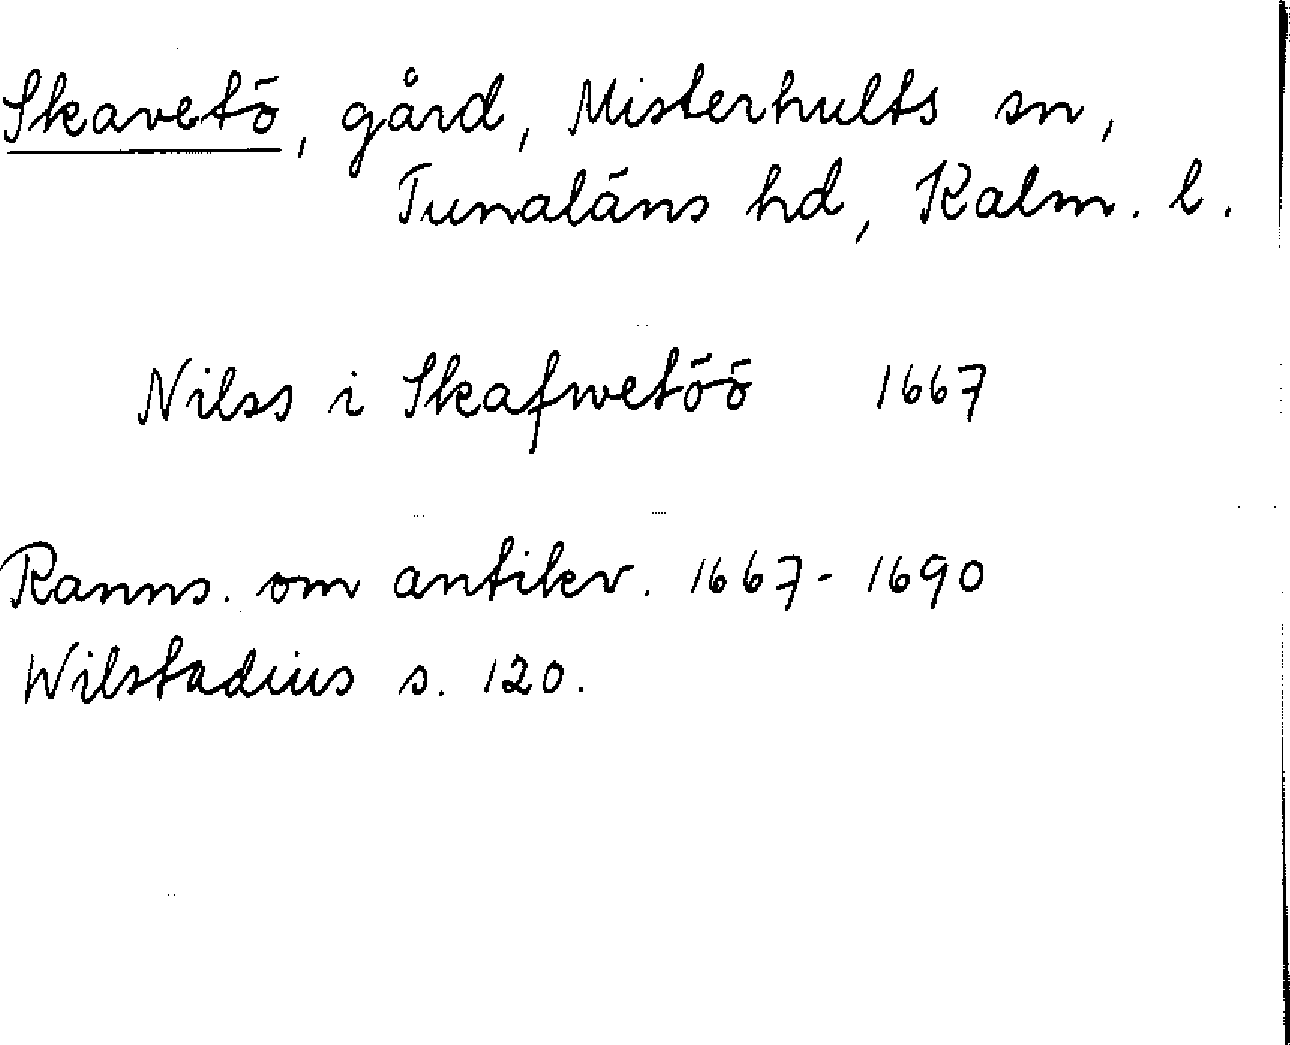 Skavetö, gård, Misterhults sn,
Tunaläns hd, Kalm. l.
Nilss i Skafwetöö 1667
Ranns. om antikv. 1667-1690
Wilstadius s. 120.